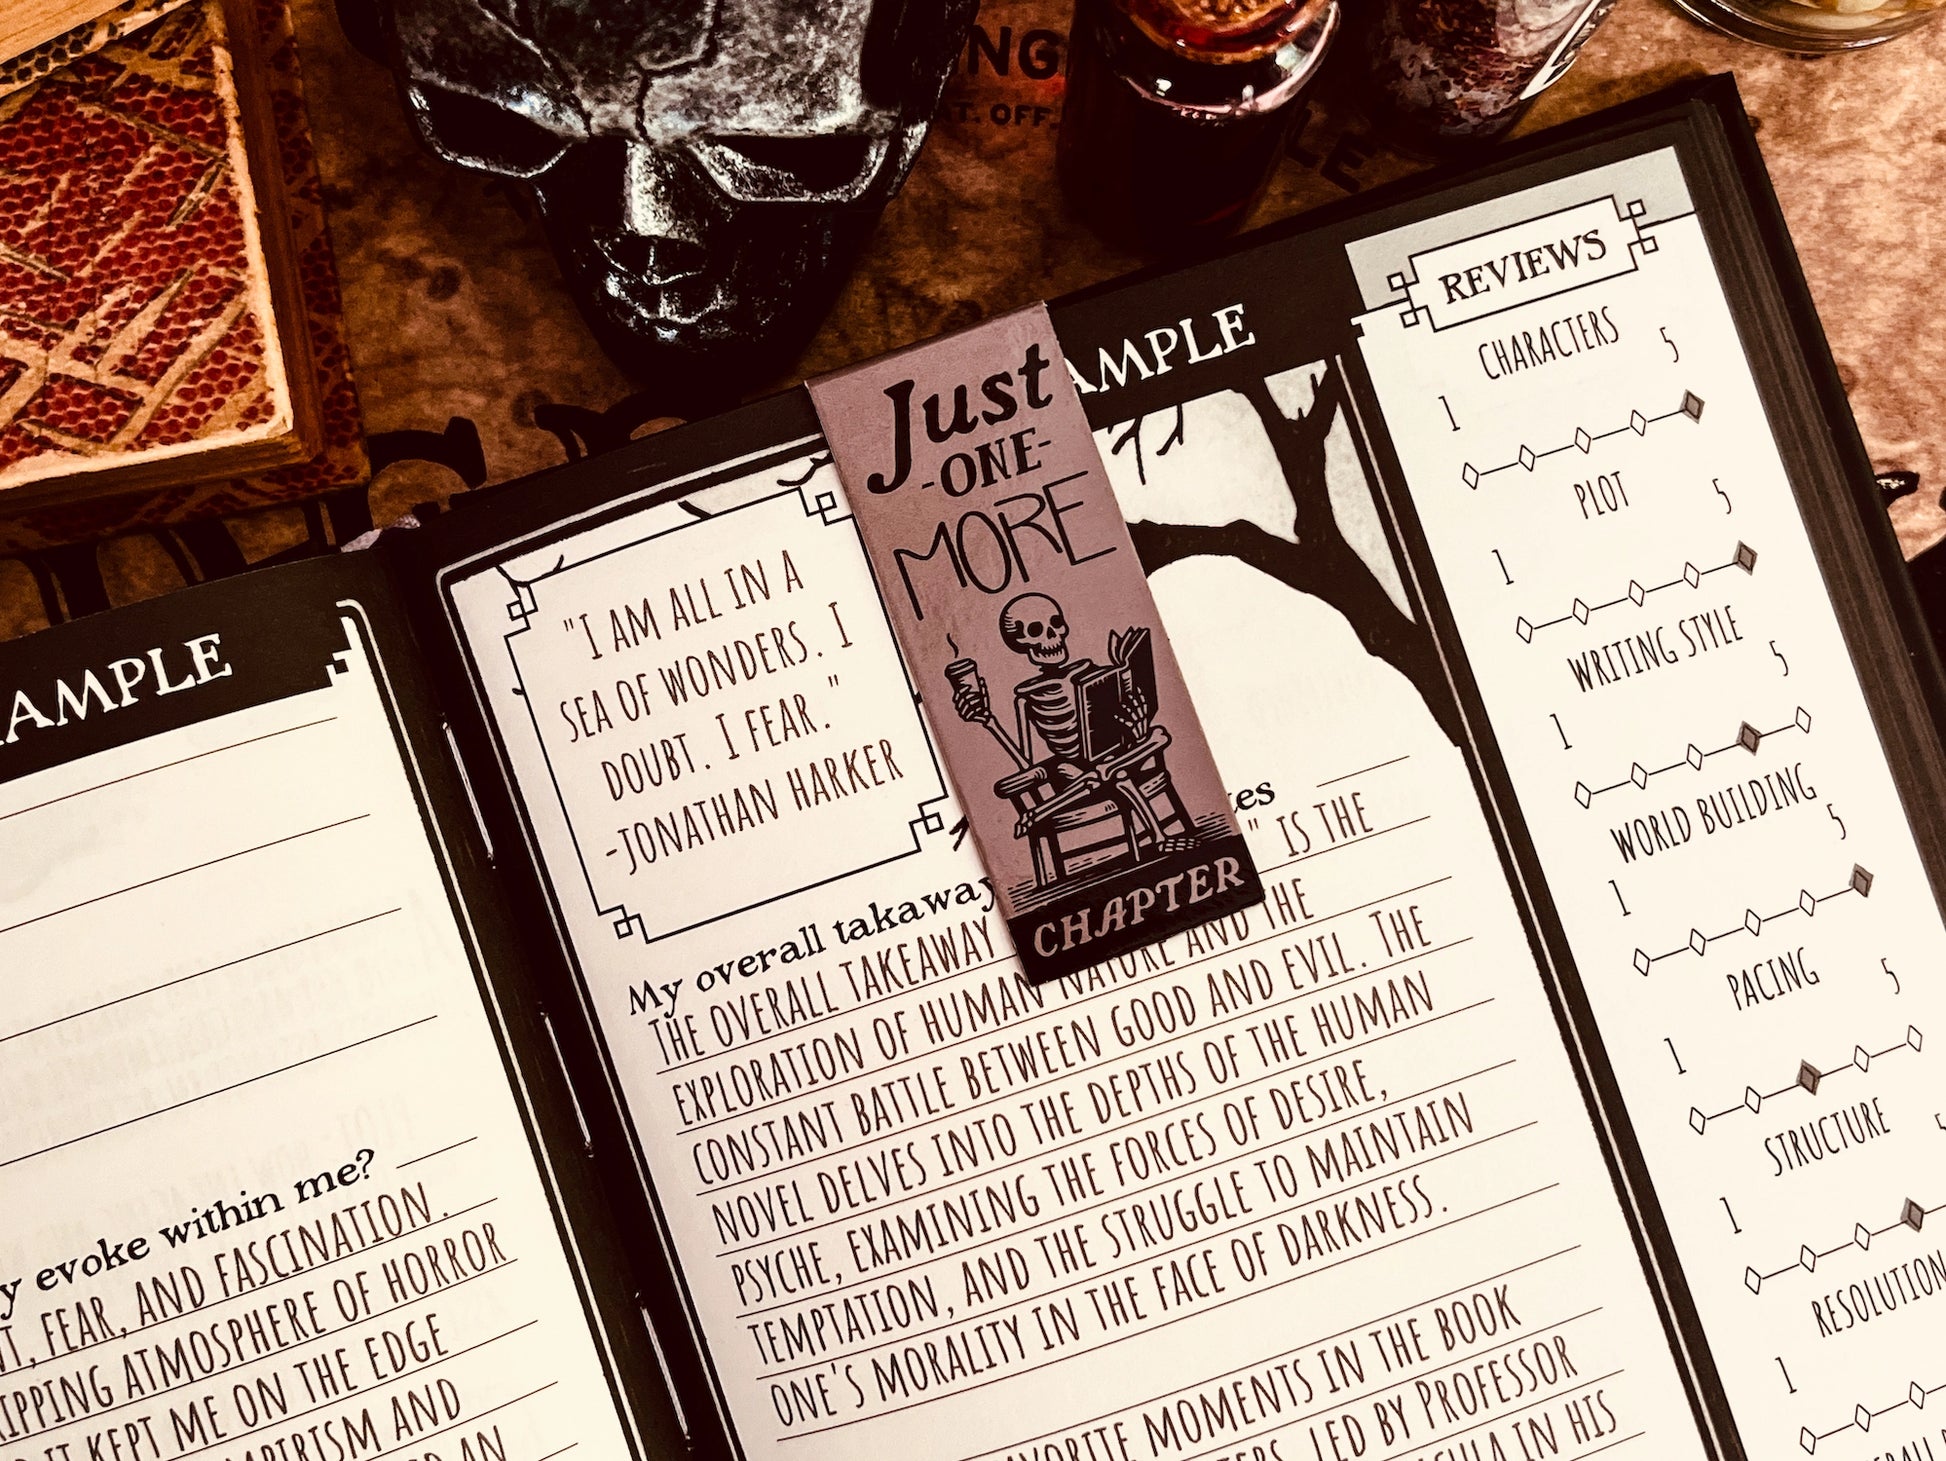 NG
T. OFF.
LE
AMPLE
evoke within me?
FEAR, AND FASCINATION.
ATMOSPHERE OF HORROR
IT KEPT ME ON THE EDGE
AND
AN
AMPLE
"I AM ALL IN A
SEA OF WONDERS. I
DOUBT. I FEAR."
-JONATHAN HARKER
Just
-ONE-
MORE
CHAPTER
My overall takeaway
THE OVERALL TAKEAWAY " IS THE
EXPLORATION OF HUMAN NATURE AND THE
CONSTANT BATTLE BETWEEN GOOD AND EVIL. THE
NOVEL DELVES INTO THE DEPTHS OF THE HUMAN
PSYCHE, EXAMINING THE FORCES OF DESIRE,
TEMPTATION, AND THE STRUGGLE TO MAINTAIN
ONE'S MORALITY IN THE FACE OF DARKNESS.
MOMENTS IN THE BOOK
LED BY PROFESSOR
IN HIS
REVIEWS
CHARACTERS
1 5
PLOT
1 5
WRITING STYLE
1 5
WORLD BUILDING
1 5
PACING
1 5
STRUCTURE
1 5
RESOLUTION
1